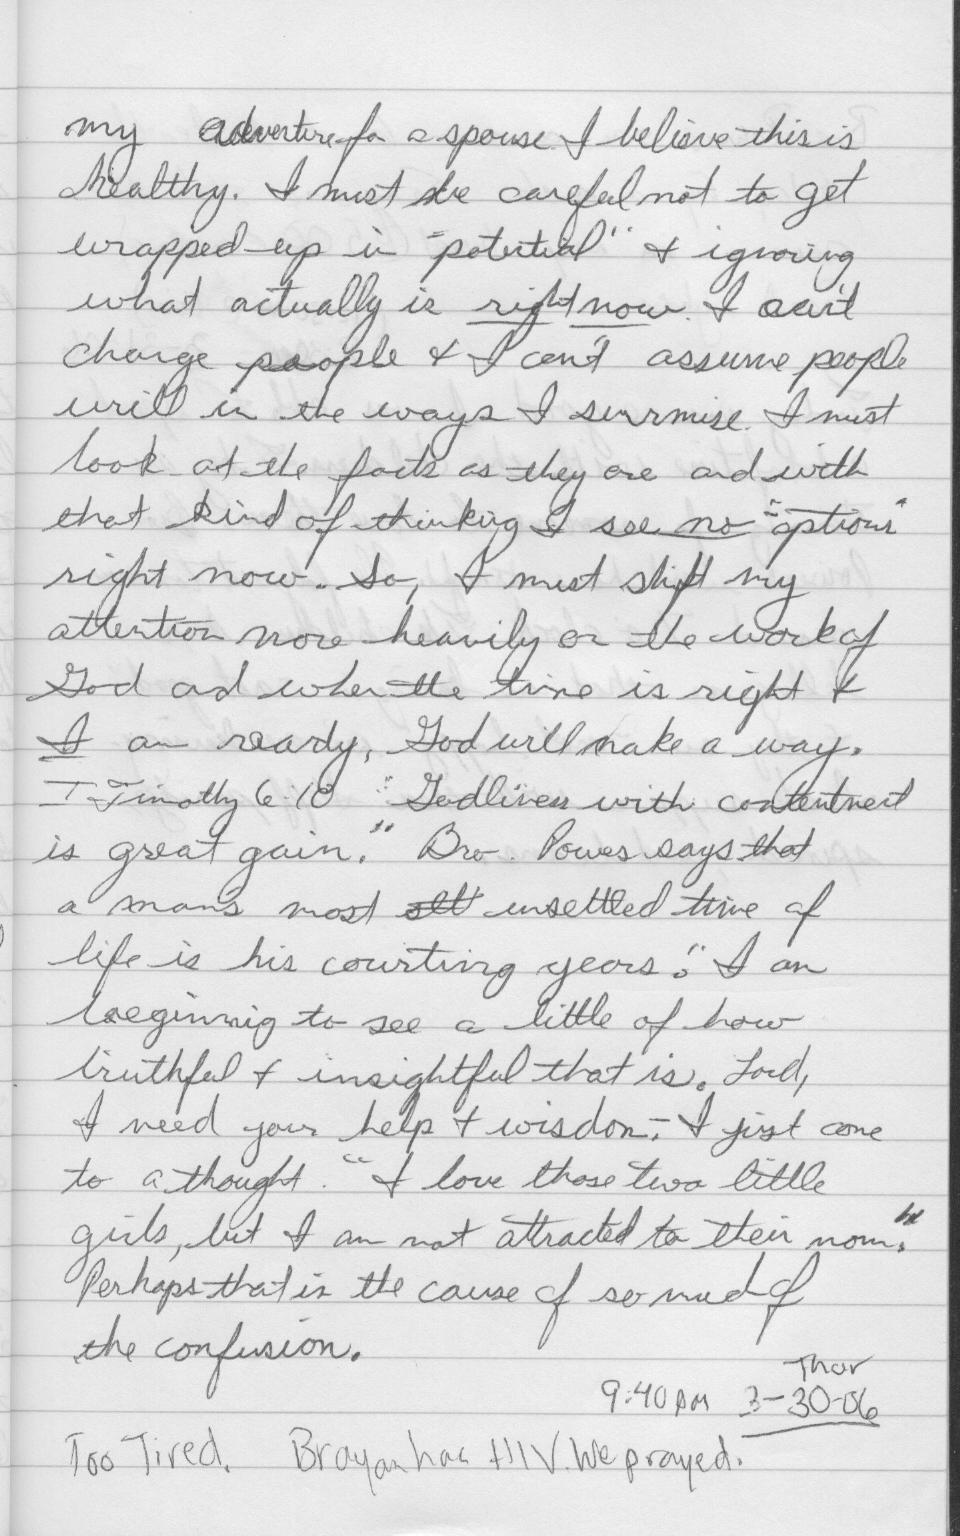 my adventure for a spouse. I believe this is
healthy. I must be careful not to get
wrapped up in "potential" & ignoring
what actually is right now. I can't
change people & I can't assume people
will in the ways I surmise. I must
look at the facts as they are and with
that kind of thinking I see no "options"
right now. So, I must shift my
attention more heavily on the work of
God and when the time is right &
I am ready, God will make a way.
I Timothy 6:10 "Godliness with contentment
is great gain." Bro. Powes says that
a mans most unsettled time of
life is his courting years." I am
beginnig to see a little of how
truthful & insightful that is. Lord,
I need your help & wisdom. I just come
to a thought. "I love those two little
girls, but I am not attracted to their mom."
Perhaps that is the cause of so much of
the confusion.
Thur
9:40 pm 3-30-06
Too Tired. Brayan has HIV. We prayed.